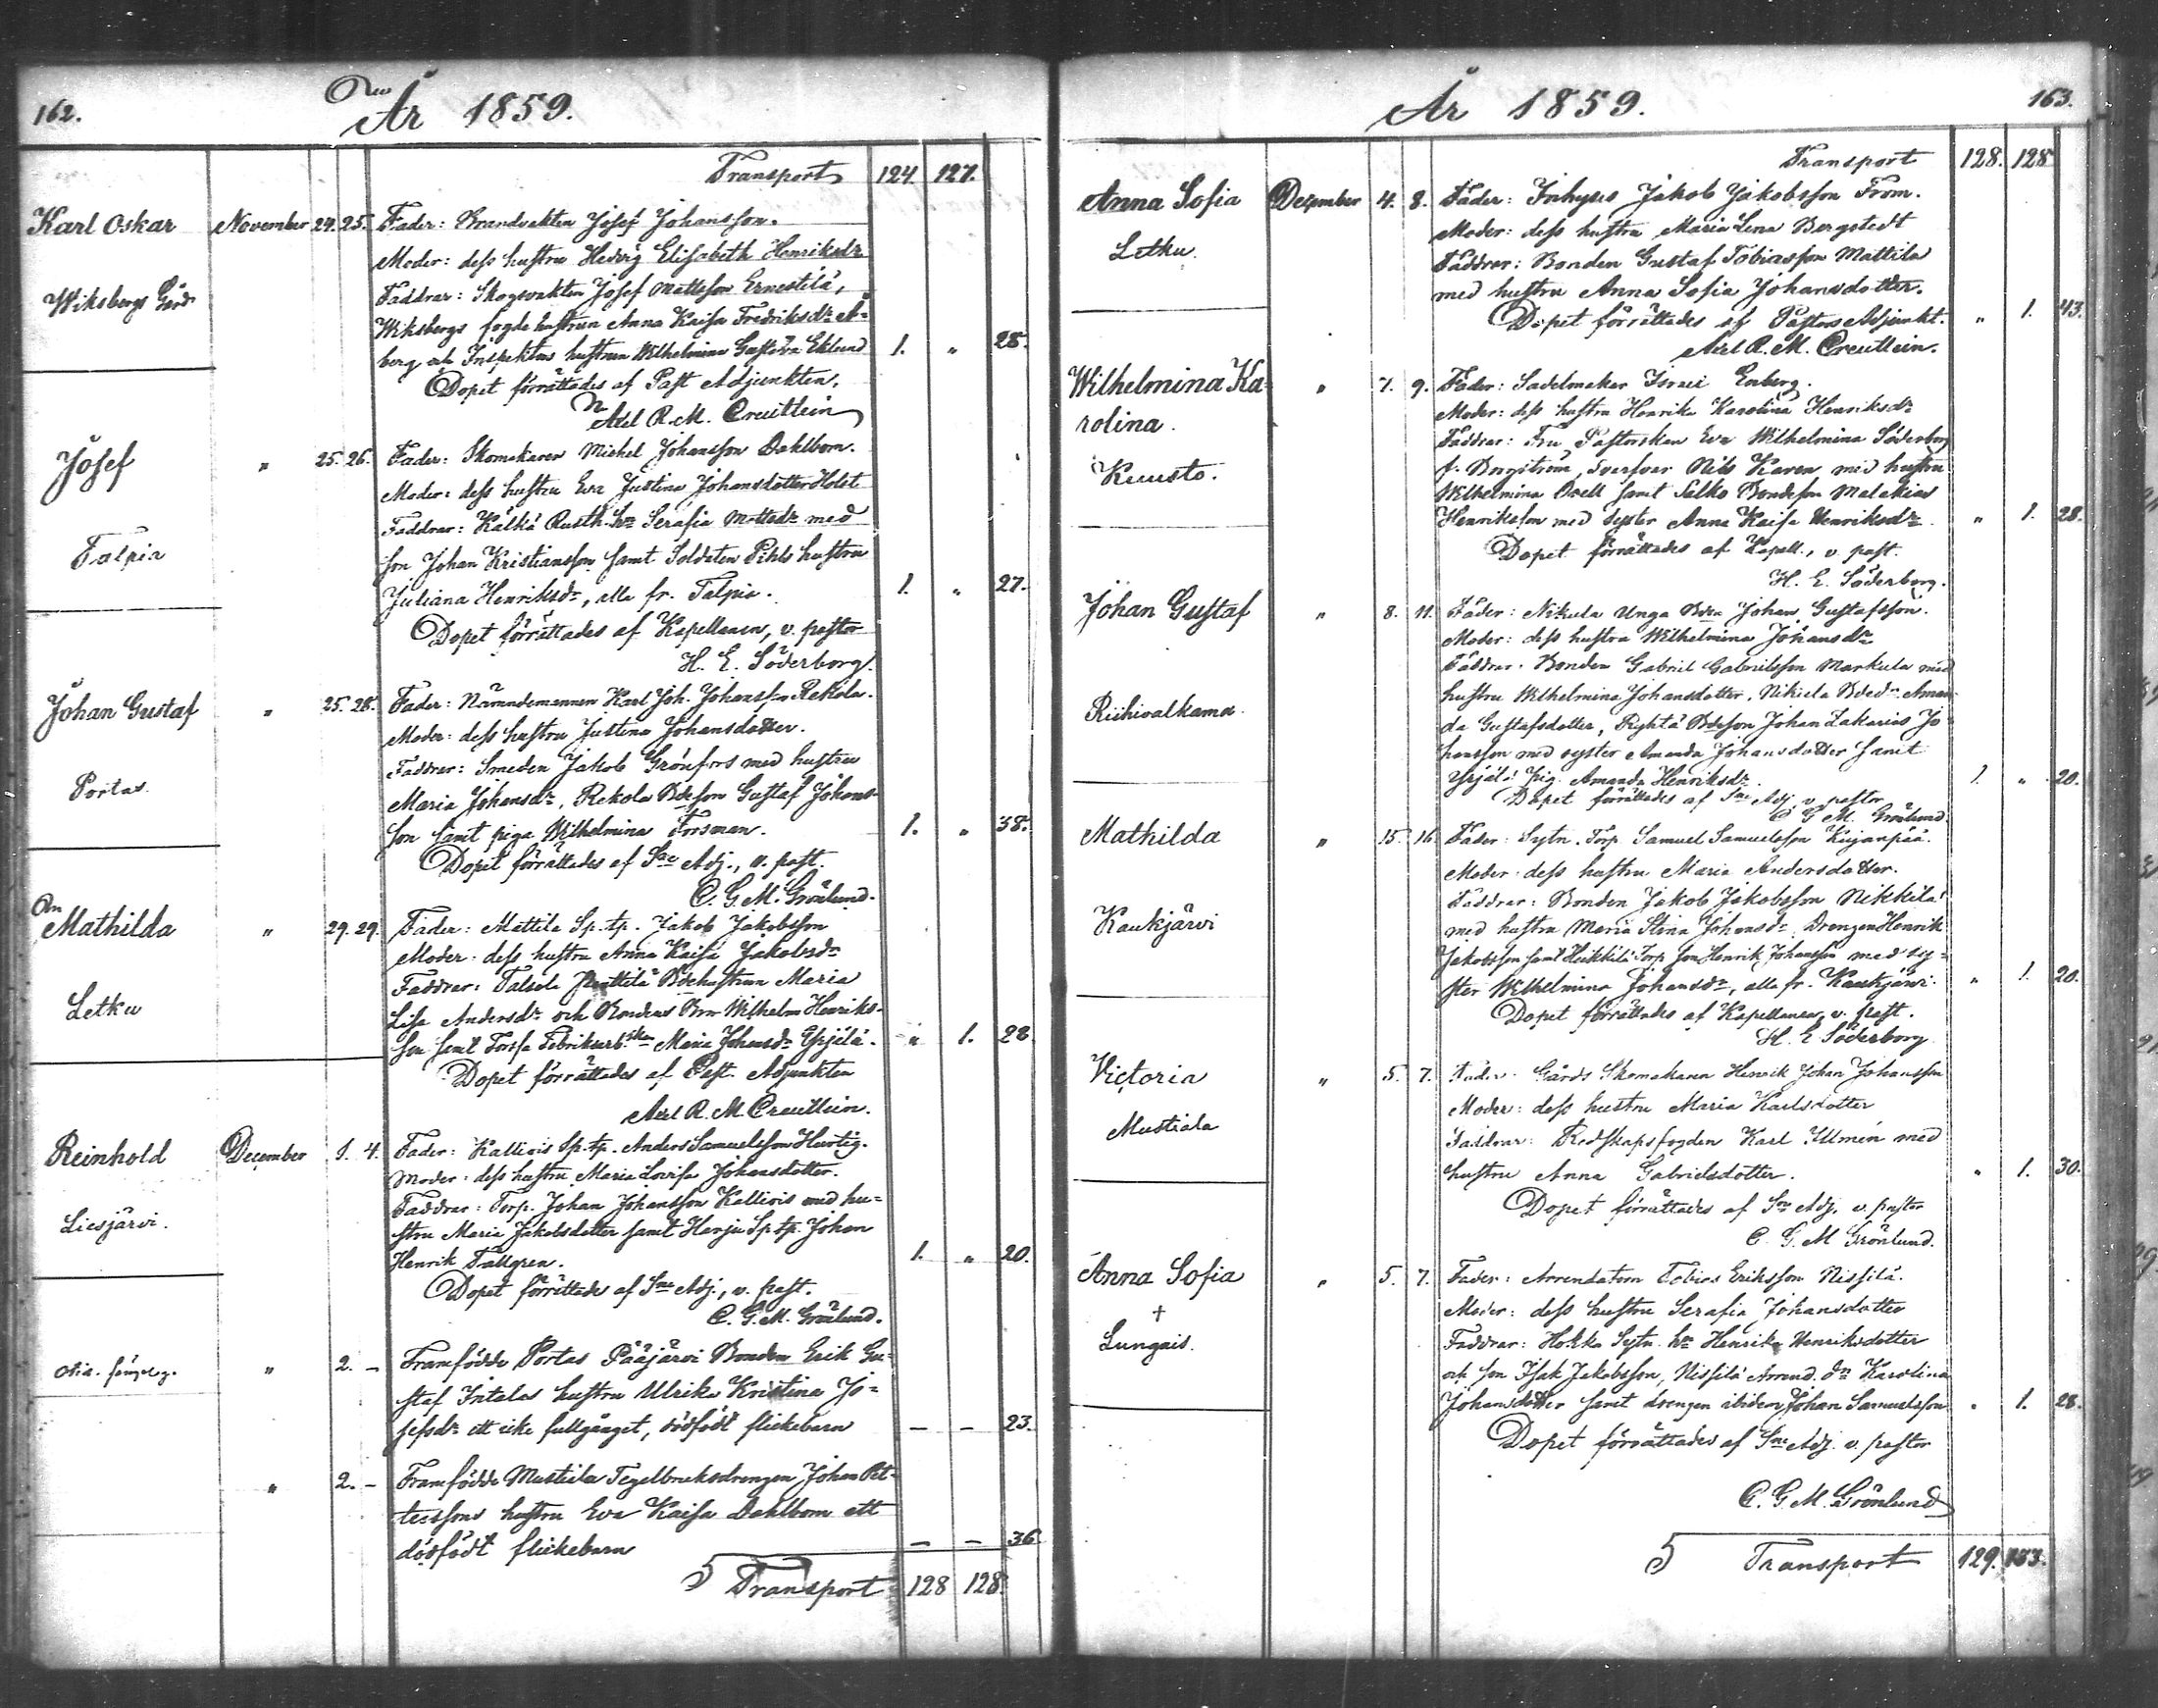 162.
År 1859.
Transport 124. 127.
Karl Oskar November 24. 25. Fader: Brandvakten Josef Johansson.
Moder: dess hustru Hedvig Elisabeth Henriksdr
Wiksbergs Gård Faddrar: Skogsvakten Josef Mattsson Ernestilä,
Wiksbergs fogde hustrun Anna Kaisa Fredriksdr Å=
berg och Inspektors hustrun Wilhelmina Gustava Eklund 1. " 28.
Dopet förrättades af Past Adjunkten,
Axel R. M. Creutlein
Josef " 25. 26. Fader: Skomakaren Michel Johansson Dahlbom.
Moder: dess hustru Eva Justina Johansdotter Holst
Faddrar: Kälkä Rusth. hu Serafia Mattsdr med
Talpia son Johan Kristiansson samt Soldaten Pihls hustru
Juliana Henriksdr, alla fr. Talpia. 1. " 27.
Dopet förrättades af Kapellanen, v. pastor
H. E. Söderborg.
Johan Gustaf " 25. 28. Fader: Nämndemannen Karl Joh. Johansson Rekola.
Moder: dess hustru Justina Johansdotter.
Faddrar: Smeden Jakob Grönfors med hustru
Portas Maria Johansdr, Rekola Bdeson Gustaf Johans-
son samt piga Wilhelmina Forsman. 1. " 38.
Dopet förrättades af Sne Adj., v. past.
C. G. M. Grönlund.
Mathilda " 29. 29. Fader: Mattila Sp. tp. Jakob Jakobsson
Moder: dess hustru Anna Kaisa Jakobsdr
Faddrar: Talsola Prättilä Bdehustrun Maria
Letku Lisa Andersdr och Bondens Bror Wilhelm Henriks-
son samt Forssa Fabriksarb.skan Maria Johansdr Yrjälä. " 1. 28
Dopet förrättades af Past. Adjunkten
Axel R. M. Creutlein.
Reinhold December 1. 4. Fader: Kalliois Sp. tp. Anders Samuelsson Hurtig.
Moder: dess hustru Maria Lovisa Johansdotter.
Faddrar: Torp. Johan Johansson Kalliois med hu=
Liesjärvi. stru Maria Jakobsdotter samt Harju Sp. tp. Johan
Henrik Tallgren. 1. " 20.
Dopet förrättades af Sne Adj., v. past.
C. G. M. Grönlund.
" 2. – Framfödde Portas Pääjärvi Bonden Erik Gu=
staf Intalas hustru Ulrika Kristina Jo=
sefsdr ett icke fullgånget, dödfödt flickebarn – – 23.
" 2. – Framfödde Mustiala Tegelbruksdrengen Johan Pet-
terssons hustru Eva Kaisa Dahlbom ett
dödfödt flickebarn – – 36
Transport 128 128.
År 1859.
163.
Transport 128. 128
Anna Sofia December 4. 8. Fader: Inhyses Jakob Jakobsson From.
Moder: dess hustru Maria Lena Bergstedt
Letku. Faddrar: Bonden Gustaf Tobiasson Mattila
med hustru Anna Sofia Johansdotter.
Dopet förrättades af Pastors Adjunkt. " 1. 43.
Axel R. M. Creutlein.
Wilhelmina Ka= " 7. 9. Fader: Sadelmakar Israel Enberg.
rolina. Moder: dess hustru Henrika Karolina Henriksdr
Faddrar: Fru Pastorskan Eva Wilhelmina Söderborg
Kuusto. f. Borgström, Svarfvar Nils Karen med hustru
Wilhelmina Boell samt Salko Bondeson Malakias
Henriksson med syster Anna Kaisa Henriksdr. " 1. 28.
Dopet förrättades af Kapell., v. past.
H. E. Söderborg.
Johan Gustaf " 8. 11. Fader: Nikula Unga Bden Johan Gustafsson.
Moder: dess hustru Wilhelmina Johansdr
Faddrar: Bonden Gabriel Gabrielsson Markula med
Riihivalkama. hustru Wilhelmina Johansdotter, Nikula Bdedr Aman-
da Gustafsdotter, Ryhtä Bdeson Johan Zakarias Jo-
hansson med syster Amanda Johansdotter samt
Yrjälä pig. Amanda Henriksdr. 1. " 20.
Dopet förrättades af Sne Adj. v. pastor
C G M. Grönlund.
Mathilda " 15. 16. Fader: Sytn. Torp. Samuel Samuelsson Kujanpää.
Moder: dess hustru Maria Andersdotter.
Faddrar: Bonden Jakob Jakobsson Nikkilä
Kaukjärvi med hustru Maria Stina Johansdr, Drengen Henrik
Jakobsson samt Heikkilä Torp. son Henrik Johansson med sy-
ster Wilhelmina Johansdr, alla fr. Kaukjärvi. " 1. 20.
Dopet förrättades af Kapellanen, v. past.
H. E Söderborg
Victoria " 5. 7. Fader: Gårds Skomakaren Henrik Johan Johansson
Moder: dess hustru Maria Karlsdotter
Mustiala Faddrar: Redskapsfogden Karl Illmén med
hustru Anna Gabrielsdotter. " 1. 30.
Dopet förrättades af Sne Adj. v. pastor
C. G. M Grönlund.
Anna Sofia " 5. 7. Fader: Arrendatorn Tobias Eriksson Nissilä.
† Moder: dess hustru Serafia Johansdotter
Lungais. Faddrar: Hokka Sytn. hu Henrika Henriksdotter
och son Isak Jakobsson, Nissilä Arrend. dr Karolina
Johansdotter samt drengen ibidem Johan Samuelsson " 1. 28.
Dopet förrättades af Sne Adj. v. pastor
C. G. M. Grönlund
Transport 129. 133.